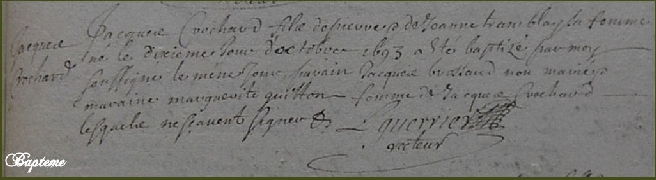 Jacques Crochard
Jacques Crochard filz de pierre & de Jeanne tramblay sa femme
né le dixieme jour d'octobre 1693 a été baptizé par moy
soussigné le méme jour, parain Jacques brossaud non marié &
maraine marguerite guitton femme de Jacques Crochard
lesquels ne scavent signer &
L guerrier
recteur
Bapteme